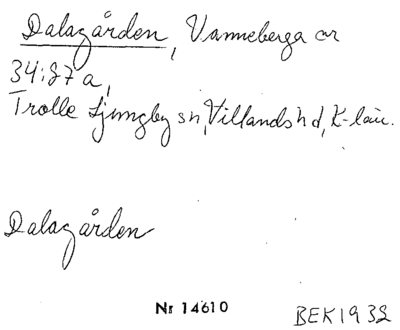 Dalagården, Vanneberga ar
34:87a,
Trolle Ljungby sn, Villands hd, K-län.
Dalagården
Nr 14610
BEK 1932